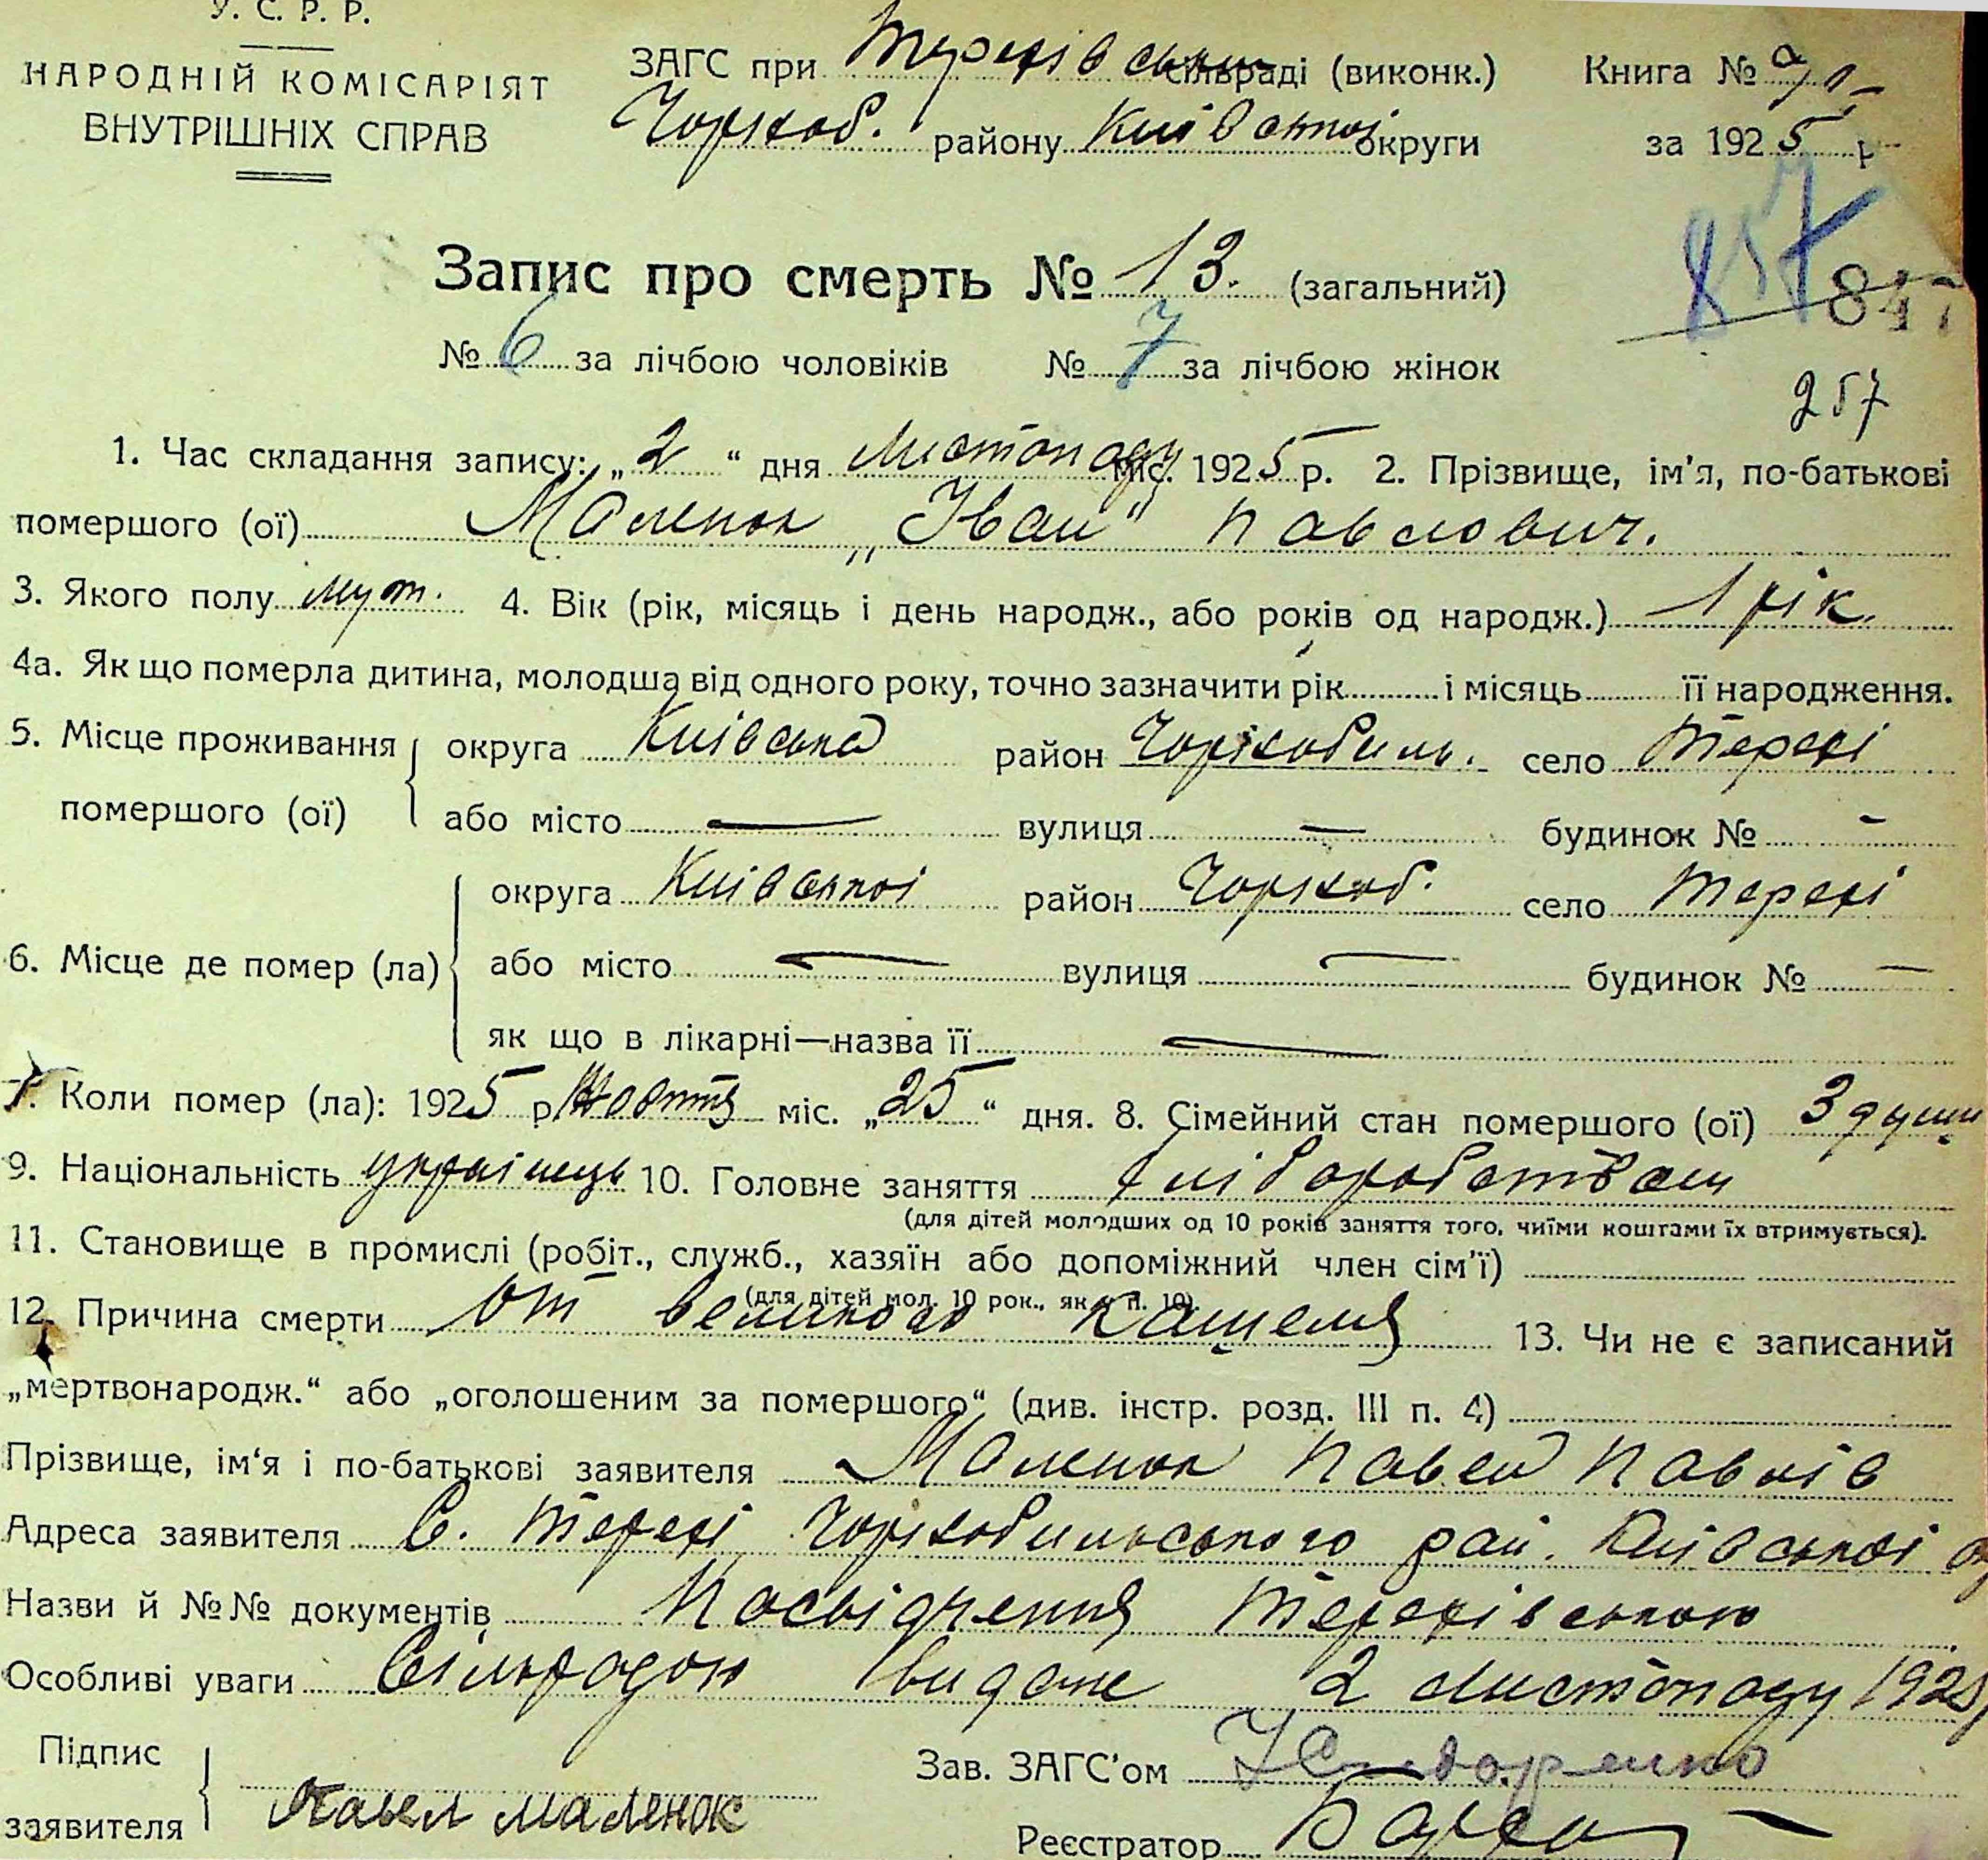 У. С. Р. Р.
НАРОДНІЙ КОМІСАРІЯТ
ВНУТРІШНІХ СПРАВ
ЗАГС при Терехівськ сільраді (виконк.)
Чорноб. району Київської округи
Книга №
за 1925 р
Запис про смерть № 13. (загальний)
№ 6 за лічбою чоловіків № 7 за лічбою жінок
257
847
257
1. Час складання запису: „2“ дня Листопаду міс. 1925 р. 2. Прізвище, ім'я, по-батькові
помершого (ої) Маленок „Іван“ Павлович.
3. Якого полу муж. 4. Вік (рік, місяць і день народж., або років од народж.) 1 рік.
4а. Як що померла дитина, молодша від одного року, точно зазначити рік і місяць її народження.
5. Місце проживання помершого (ої) округа Київська район Чорнобиль. село Терехі
або місто — вулиця — будинок № —
6. Місце де помер (ла) округа Київської район Чорноб. село Терехі
або місто — вулиця — будинок № —
як що в лікарні—назва її —
7. Коли помер (ла): 1925 р Жовтня міс. „25“ дня. 8. Сімейний стан помершого (ої) 3 души
9. Національність українець 10. Головне заняття хліборобством
(для дітей молодших од 10 років заняття того, чиїми коштами їх втримується).
11. Становище в промислі (робіт., служб., хазяїн або допоміжний член сім'ї)
(для дітей мол. 10 рок., як у п. 10)
12. Причина смерти От великого кашеля 13. Чи не є записаний
„мертвонародж.“ або „оголошеним за помершого“ (див. інстр. розд. III п. 4)
Прізвище, ім'я і по-батькові заявителя Маленок Павел Павлів
Адреса заявителя С. Терехі Чорнобильського рай. Київської
Назви й №№ документів Посвідчення Терехівською
Особливі уваги Сільрадою видане 2 Листопаду 1925
Підпис заявителя Павел Маленок
Зав. ЗАГС'ом
Реєстратор